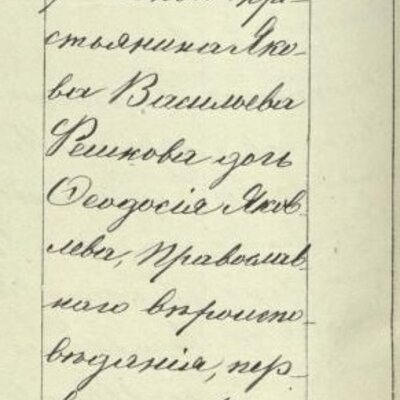 стьянина Яко-
ва Васильева
Решкова дочь
Ѳеодосія Яков-
лева, Православ-
наго вѣроиспо-
вѣданія, пер-